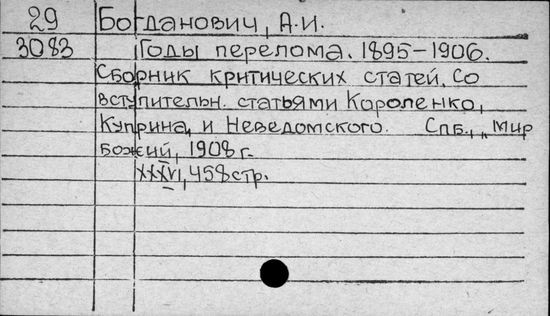 29 Богданович, А.И.
3083 Годы перелома. 1895-1906.
Сборник критических статей, со
вступительн. статьями Короленко,
Куприна, и Неведомского. Спб., „Мир
Божий, 1908 г.
XXXVI, 458 стр.